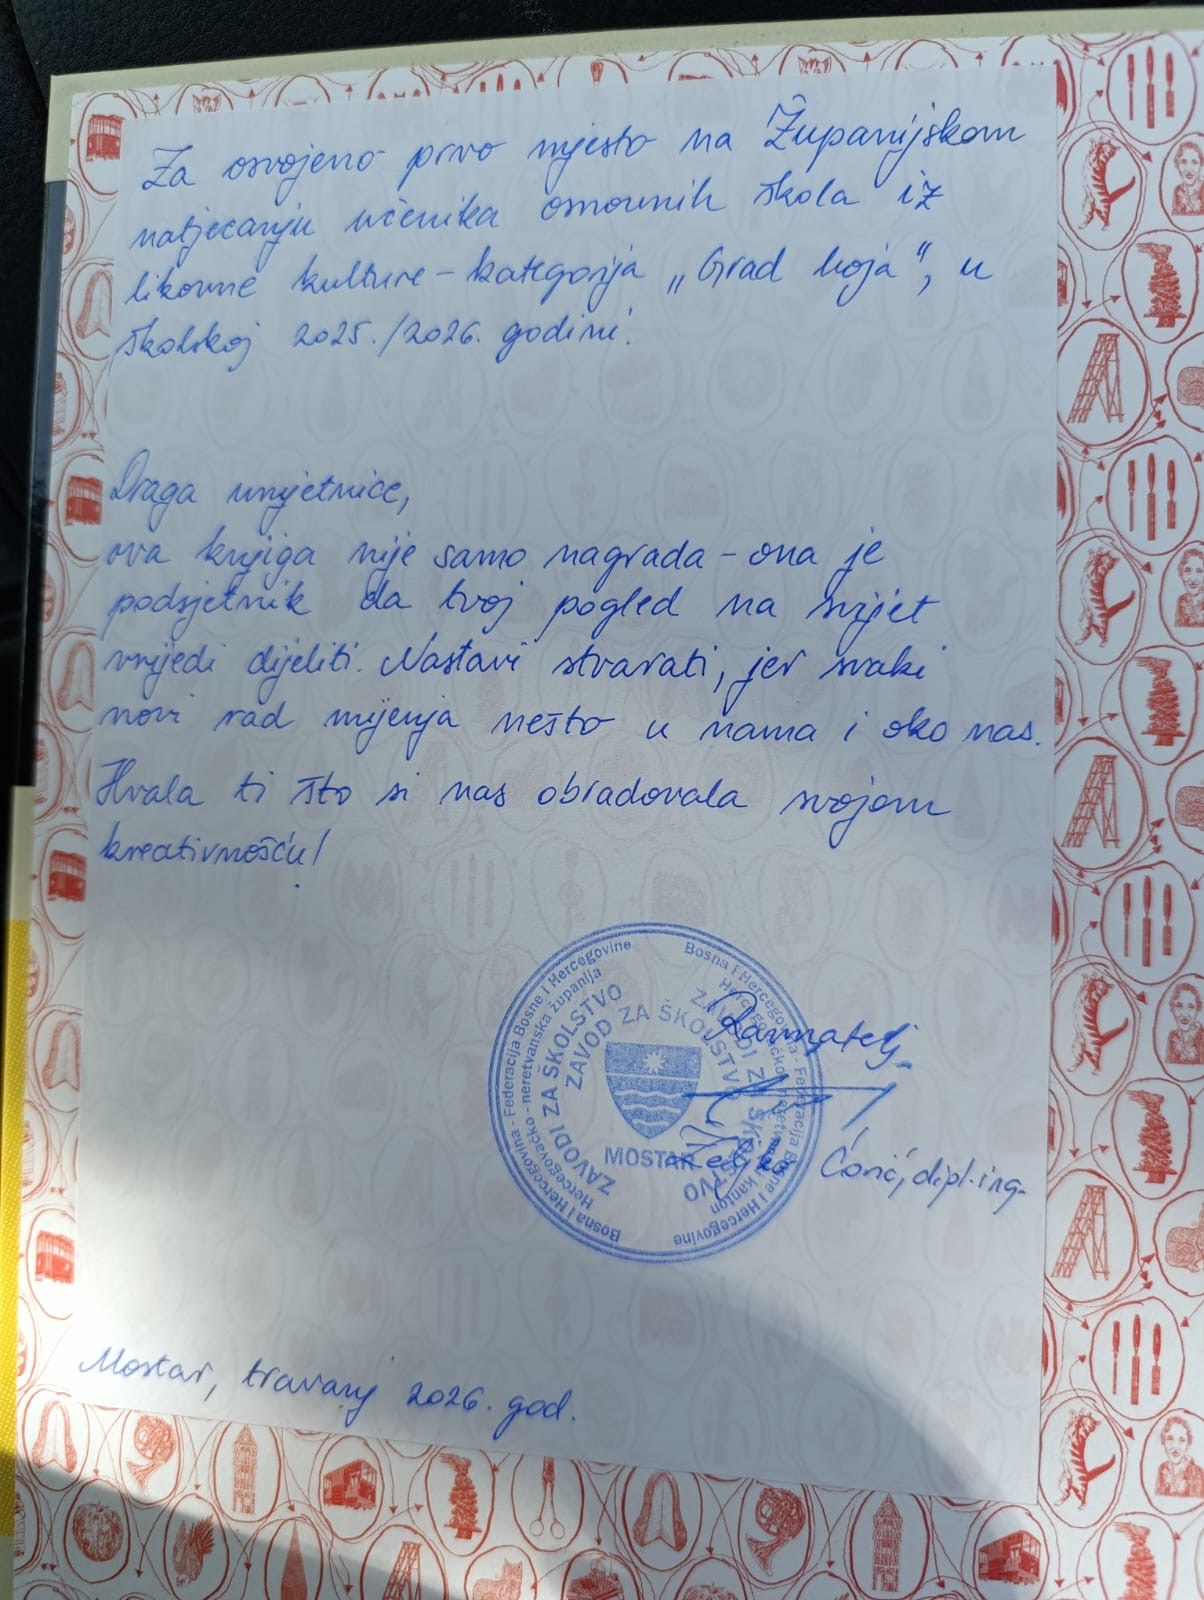 Za osvojeno prvo mjesto na Županijskom
natjecanju učenika osnovnih škola iz
likovne kulture – kategorija „Grad boja“, u
školskoj 2025./2026. godini.
Draga umjetnice,
ova knjiga nije samo nagrada – ona je
podsjetnik da tvoj pogled na svijet
vrijedi dijeliti. Nastavi stvarati, jer svaki
novi rad mijenja nešto u nama i oko nas.
Hvala ti što si nas obradovala svojom
kreativnošću!
Bosna i Hercegovina - Federacija Bosne i Hercegovine
Hercegovačko - neretvanska županija
ZAVODI ZA ŠKOLSTVO
ZAVOD ZA ŠKOLSTVO
MOSTAR
Bosna i Hercegovina - Federacija Bosne i Hercegovine
ZAVODI ZA ŠKOLSTVO
Ravnatelj
Ćorić, dipl. ing.
Mostar, travanj 2026. god.